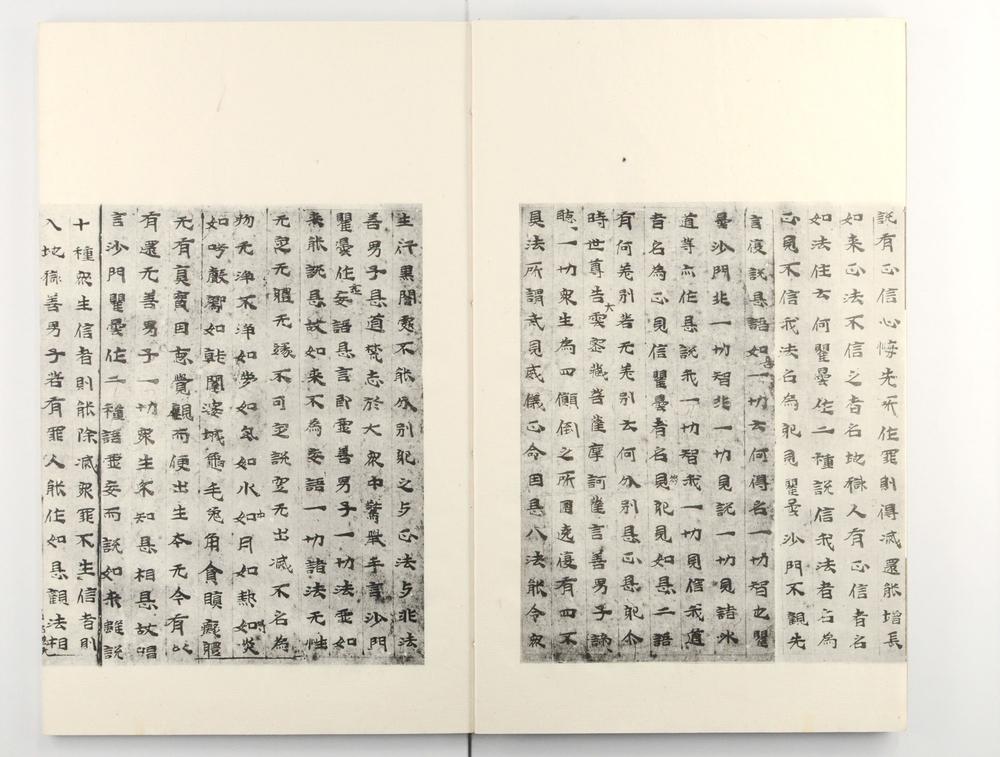 説有正信心悔先所作罪則得滅還能増長
如来正法不信之者名地獄人有正信者名
如法住云何瞿曇作二種説信我法者名為
正見不信我法名為邪見瞿曇沙門不觀先
言復説是語如一切云何得名一切智也瞿
曇沙門非一切智非一切見説一切見諸外
道等亦作是説我一切智我一切見信我道
者名為正見信瞿曇者名邪見如是二語
有何差別若无差別云何分別是正是邪尒
時世尊告雲密藏菩薩摩訶薩言善男子諦
聽一切衆生為四顛倒之所圍遶復有四不
具法所謂戒見威儀正命因是八法能令衆
生行黒闇處不能分別邪之与正法与非法
善男子是道梵志於大衆中驚擧手言沙門
瞿曇作妄語是言即虚善男子一切法虚如
来能説是故如来不為妄語一切諸法无性
无定无體无縁不可定説空无出滅不名為
物无浄不浄如夢如幻如水如月如熱如炎
如呼嚴響如乾闥婆城龜毛兎角貪瞋癡體
无有真實因惡覺觀而便出生本无今有以
有還无善男子一切衆生不知是相是故唱
言沙門瞿曇作二種語虚妄而説如来雖説
十種衆生信者則能除滅衆罪不生信者則
入地獄善男子若有罪人能作如是觀法相